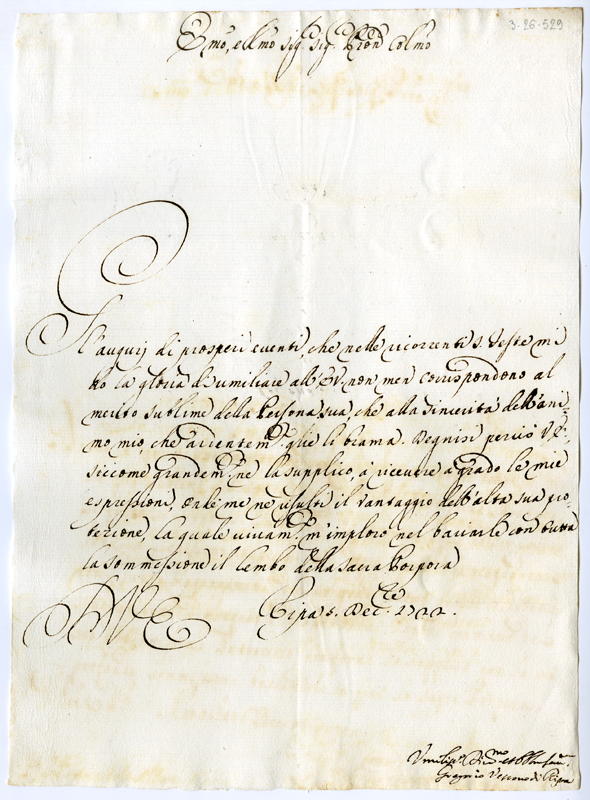 3-26-529
Emo, e Rmo Sig. Sig. Pron Colmo
Gl'augurj di prosperi eventi, che nelle ricorrenti S. Feste mi
ho la gloria d'umiliare all'EV. non men corrispondono al
merito sublime della Persona sua, che alla sincerità dell'ani-
mo mio, che ardentem.e glie li brama. Degnisi perciò V.E.
siccome grandem.e ne la supplico, à ricevere a grado le mie
espressioni, ond'è me ne risulti il vantaggio dell'alta sua pro-
tezione, la quale vivam.e m'imploro nel baciarle con tutta
la sommessione il lembo della sacra Porpora
DVE Ripa 5. Dec. 1722.
Umiliss.o Dmo et Obb
Gregorio Vescovo di Ripa